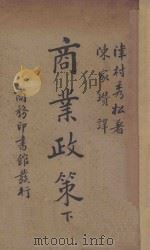 津村秀松著
陳家瓚譯
商業政策 下
商務印書館發行